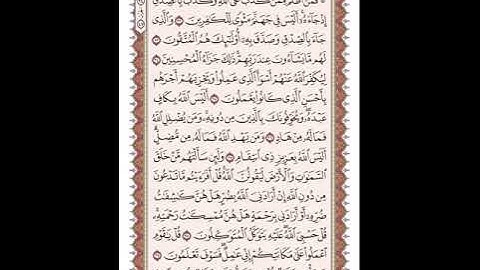 فَمَنْ أَظْلَمُ مِمَّن كَذَبَ عَلَى ٱللَّهِ وَكَذَّبَ بِٱلصِّدْقِ
إِذْ جَآءَهُۥٓ أَلَيْسَ فِى جَهَنَّمَ مَثْوًى لِّلْكَٰفِرِينَ ٣٢ وَٱلَّذِى
جَآءَ بِٱلصِّدْقِ وَصَدَّقَ بِهِۦٓ أُو۟لَٰٓئِكَ هُمُ ٱلْمُتَّقُونَ ٣٣
لَهُم مَّا يَشَآءُونَ عِندَ رَبِّهِمْ ذَٰلِكَ جَزَآءُ ٱلْمُحْسِنِينَ ٣٤
لِيُكَفِّرَ ٱللَّهُ عَنْهُمْ أَسْوَأَ ٱلَّذِى عَمِلُوا۟ وَيَجْزِيَهُمْ أَجْرَهُم
بِأَحْسَنِ ٱلَّذِى كَانُوا۟ يَعْمَلُونَ ٣٥ أَلَيْسَ ٱللَّهُ بِكَافٍ
عَبْدَهُۥ وَيُخَوِّفُونَكَ بِٱلَّذِينَ مِن دُونِهِۦ وَمَن يُضْلِلِ ٱللَّهُ
فَمَا لَهُۥ مِنْ هَادٍ ٣٦ وَمَن يَهْدِ ٱللَّهُ فَمَا لَهُۥ مِن مُّضِلٍّ
أَلَيْسَ ٱللَّهُ بِعَزِيزٍ ذِى ٱنتِقَامٍ ٣٧ وَلَئِن سَأَلْتَهُم مَّنْ خَلَقَ
ٱلسَّمَٰوَٰتِ وَٱلْأَرْضَ لَيَقُولُنَّ ٱللَّهُ قُلْ أَفَرَءَيْتُم مَّا تَدْعُونَ
مِن دُونِ ٱللَّهِ إِنْ أَرَادَنِىَ ٱللَّهُ بِضُرٍّ هَلْ هُنَّ كَٰشِفَٰتُ
ضُرِّهِۦٓ أَوْ أَرَادَنِى بِرَحْمَةٍ هَلْ هُنَّ مُمْسِكَٰتُ رَحْمَتِهِۦ
قُلْ حَسْبِىَ ٱللَّهُ عَلَيْهِ يَتَوَكَّلُ ٱلْمُتَوَكِّلُونَ ٣٨ قُلْ يَٰقَوْمِ
ٱعْمَلُوا۟ عَلَىٰ مَكَانَتِكُمْ إِنِّى عَٰمِلٌ فَسَوْفَ تَعْلَمُونَ ٣٩